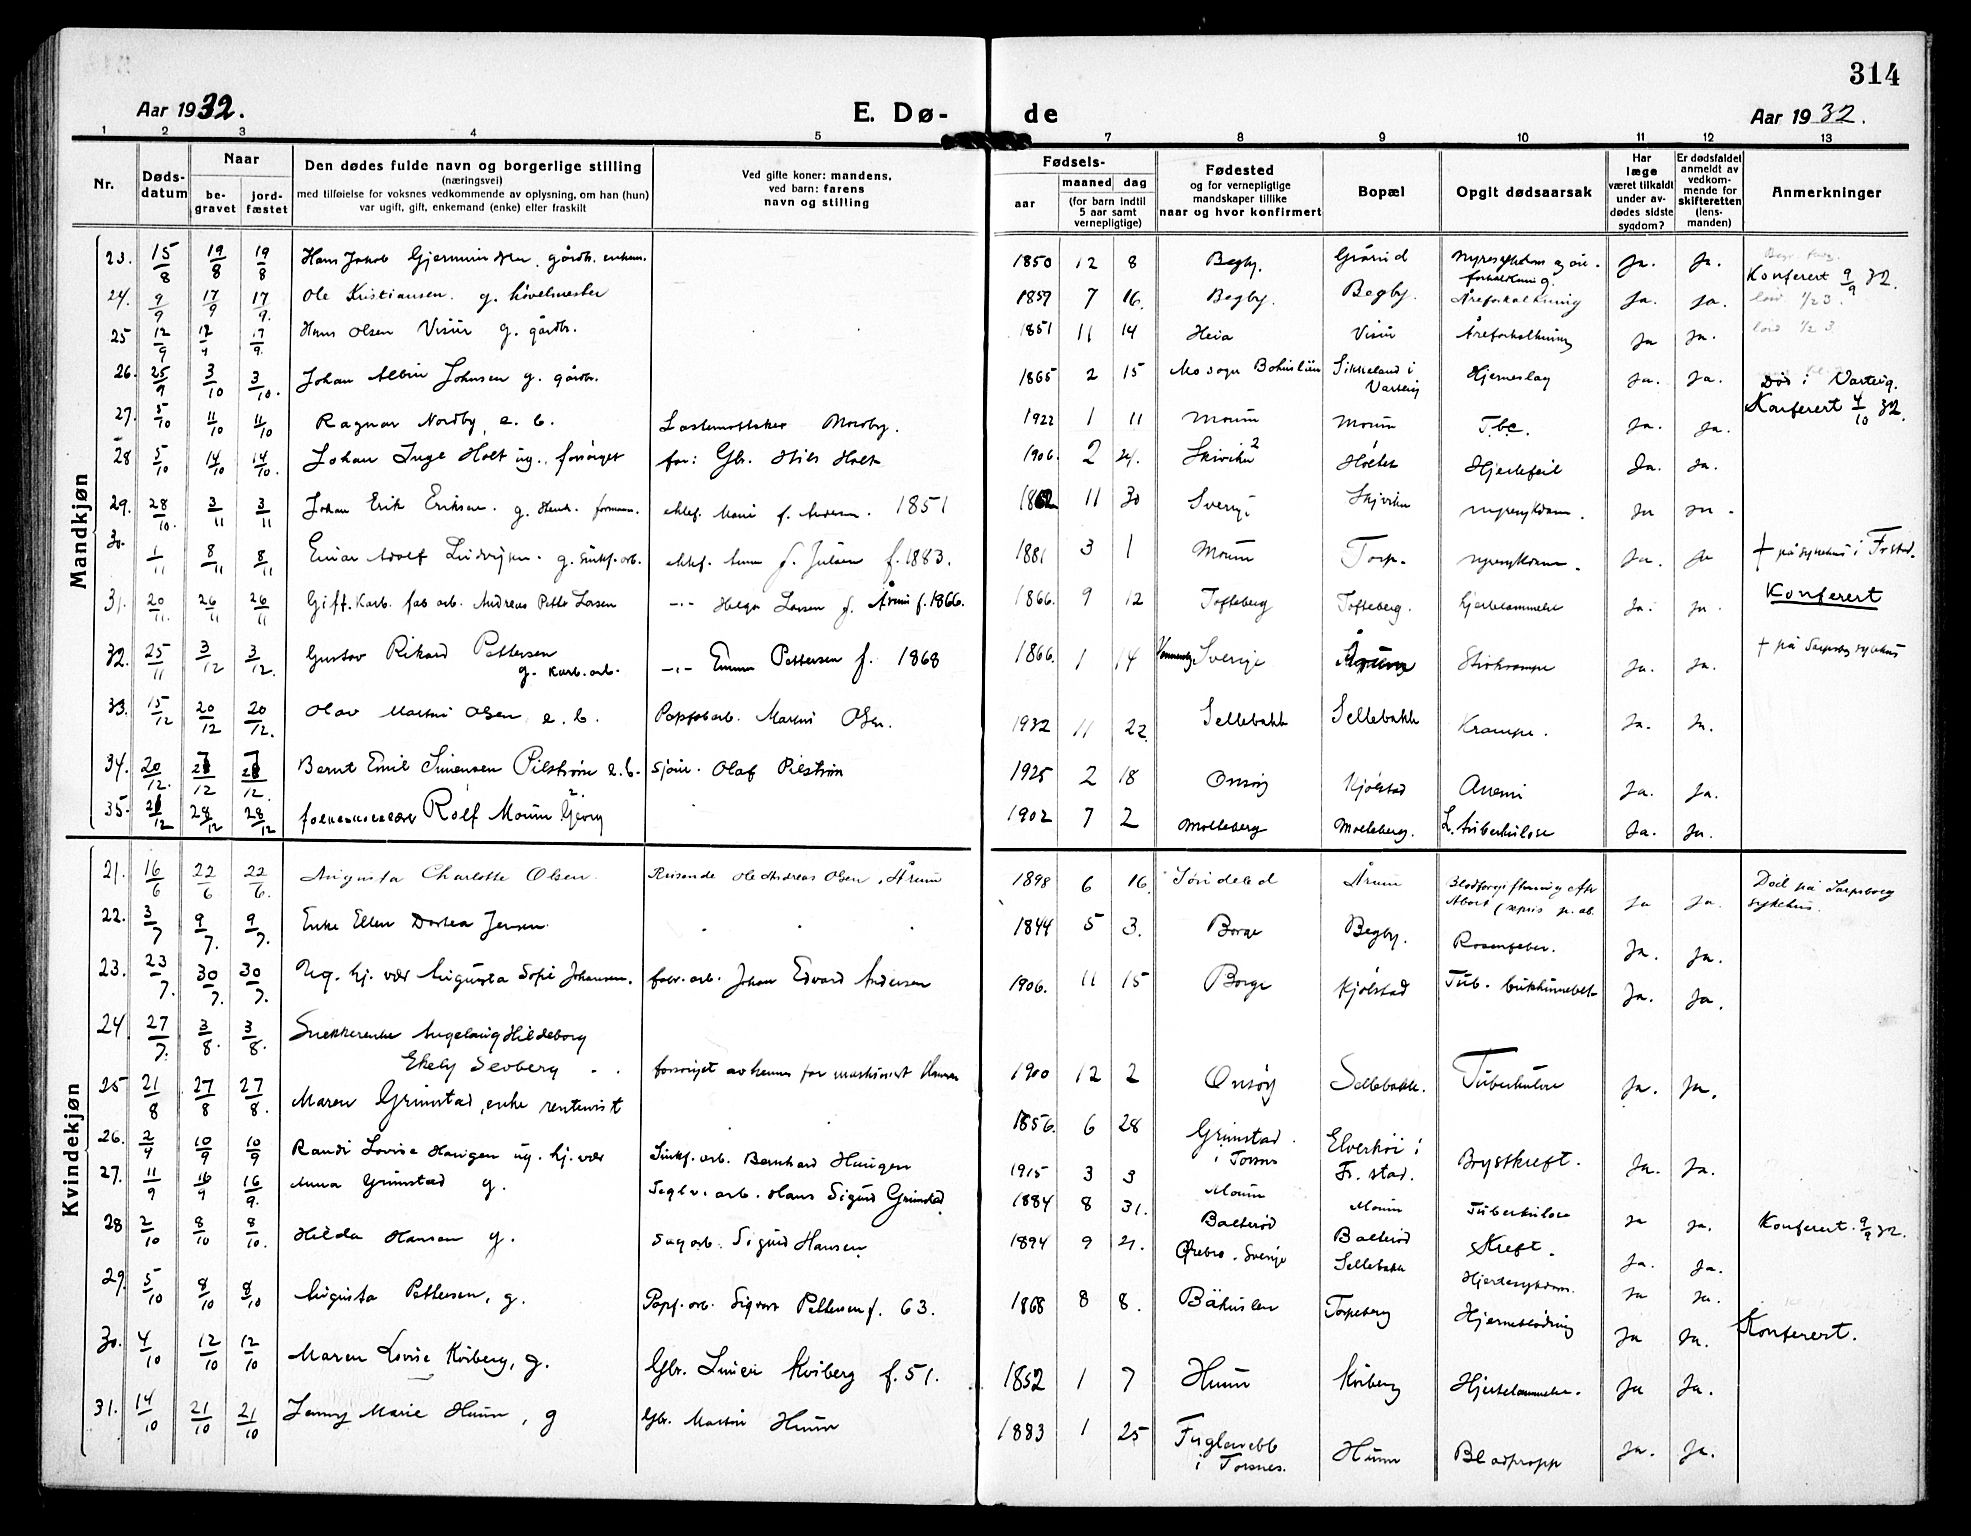 314
Aar 1932.
E. Dø-
de
Aar 1932.
1 2 3 4 5 7 8 9 10 11 12 13
Nr.
Døds-
datum
Naar
be-
gravet
jord-
fæstet
Den dødes fulde navn og borgerlige stilling
(næringsvei)
med tilføielse for voksnes vedkommende av oplysning, om han (hun)
var ugift, gift, enkemand (enke) eller fraskilt
Ved gifte koner: mandens,
ved barn: farens
navn og stilling
Fødsels-
aar
maaned dag
(for barn indtil
5 aar samt
vernepligtige)
Fødested
og for vernepligtige
mandskaper tillike
naar og hvor konfirmert
Bopæl
Opgit dødsaarsak
Har
læge
været tilkaldt
under av-
dødes sidste
sygdom?
Er dødsfaldet
anmeldt av
vedkom-
mende for
skifteretten
(lens-
manden)
Anmerkninger
Mandkjøn
23. 15/8 19/8 19/8 Hans Jakob gårdbr. 1850 12 8 Begby. Ja. Ja. Konferert 9/9 32.
24. 9/9 17/9 17/9. Ole Kristiansen. g. høvelmester 1857 7 16. Begby. Begby. Åreforkalkning Ja. Ja.
25 12/9 17/9. Hans Olsen Visür g. gårdbr. 1851 11 14 Heia Visür Åreforkalkning Ja Ja.
26. 25/9 3/10 3/10. Johan Albin Johnsen g. gårdbr. 1865 2 15 Mo sogn Bohuslän Sikkeland i Varteig Hjerneslag Ja. Ja. Død i Varteig. Konferert 4/10 32.
27. 5/10 11/10 11/10 Ragnar Nordby, e. b. Nordby. 1922 1 11 Moum Moum T.b.c. Ja. Ja.
28 5/10 14/10 14/10. Johan Inge Holt ug., forsørget far: Gbr. Nils Holt 1906. 2 24. Skivika Holtet Hjertefeil Ja. Ja.
29. 28/10. 3/11 3/11 Johan Erik Eriksen. g. formann. ektef. Marie f. Andersen. 1851 11 30 Sverige Skjvika nyresykdom. Ja Ja.
30. 1/11 8/11 8/11 Einar Adolf g. sinkf. arb. ektef. Anna f. Julsen f. 1883. 1881 3 1 Moum Torp. nyresykdom. Ja. Ja † på sykehus i Frstad.
31. 20/11. 26/11 26/11 Gift. Karb. fab arb. Andreas Petter Larsen -"- Helga Larsen f. Årum f. 1866. 1866. 9 12 Tofteberg Tofteberg. hjertelammelse Ja. Ja. Konferert
32. 25/11 3/12 3/12. Gustav Rikard Pettersen g. Karb. arb. -"- Emma Pettersen f. 1868 1866. 1 14 Sverige Årum Ja. Ja. † på Sarpsborg sykehus
33. 15/12 20/12 20/12. Olav Martin Olsen e. b. Papfabarb. Martin Olsen. 1932 11 22. Sellebakk Sellebakk Krampe. Ja. Ja.
34. 20/12. Bernt Emil Simensen Pilstrøm e. b. Sjøm. Olaf Pilstrøm 1925 2 18 Onsøy Kjølstad Anemi Ja. Ja.
35. 21/12 28/12 28/12 Rolf Moum Georg 1902 7 2 Molleberg Molleberg. L. tuberkulose Ja. Ja.
Kvindekjøn
21. 16/6 22/6 22/6. Augusta Charlotte Olsen. Reisende Ole Andreas Olsen, Årum 1898 6 16. Søndeled Årum Blodforgiftning efter Abort (sepsis p. ab. Ja Ja. Død på Sarpsborg sykehus.
22. 3/7 9/7. 9/7. Enke Ellen Dortea Jensen. 1844 5 3. Borge Begby. Rosenfeber. Ja. Ja.
23. 23/7. 30/7. 30/7. Ug. hj. vær Augusta Sofie Johansen. fabr. arb. Johan Edvard Andersen 1906. 11 15 Borge Kjølstad Tub. bukhinnebet. Ja. Ja.
24. 27/7. 3/8. 3/8. Snekkerenke Hildeborg Ekely Seoberg forsørget av hennes far maskinist Hansen 1900 12 2 Onsøy Sellebakk. Tuberkulose Ja. Ja.
25 21/8 27/8 27/8. Maren Grimstad, enke rentenist 1856. 6 28 Grimstad i Torsnes Elverhøi i Fr. stad. Brystkreft. Ja. Ja.
26. 2/9 10/9 10/9 Randi Lovise Haugen ug. hj. vær Sinkf. arb. Bernhard Haugen 1915 3 3 Moum Moum Tuberkulose Ja Ja. Konferert. 9/9 32.
27. 11/9 16/9 16/9. Anna Grimstad g. Teglv. arb. Hans Sigurd Grimstad 1884 8 31. Balterød Balterød Kreft. Ja. Ja.
28 2/10 8/10 8/10. Hilda Hansen g. Sagarb. Sigurd Hansen 1894 9 21. Ørebro. Sverige Sellebakk Hjertesykdom. Ja Ja.
29. 5/10 8/10 8/10 Augusta Pettersen, g. Papf. arb. Sigvart Pettersen f. 63. 1868 8 8. Båhuslen Torpeberg Hjerneblødning Ja Ja. Konferert.
30. 4/10 12/10 12/10 Maren Lovise Kviberg, g. Gbr. Kviberg f. 51. 1852 1 7 Hunn Kviberg Hjertelammelse. Ja Ja.
31. 14/10 21/10 21/10 Jenny Marie Hunn, g Gbr. Martin Hunn 1883 1 25 Fuglevebb i Torsnes. Hunn Blodpropp Ja. Ja.